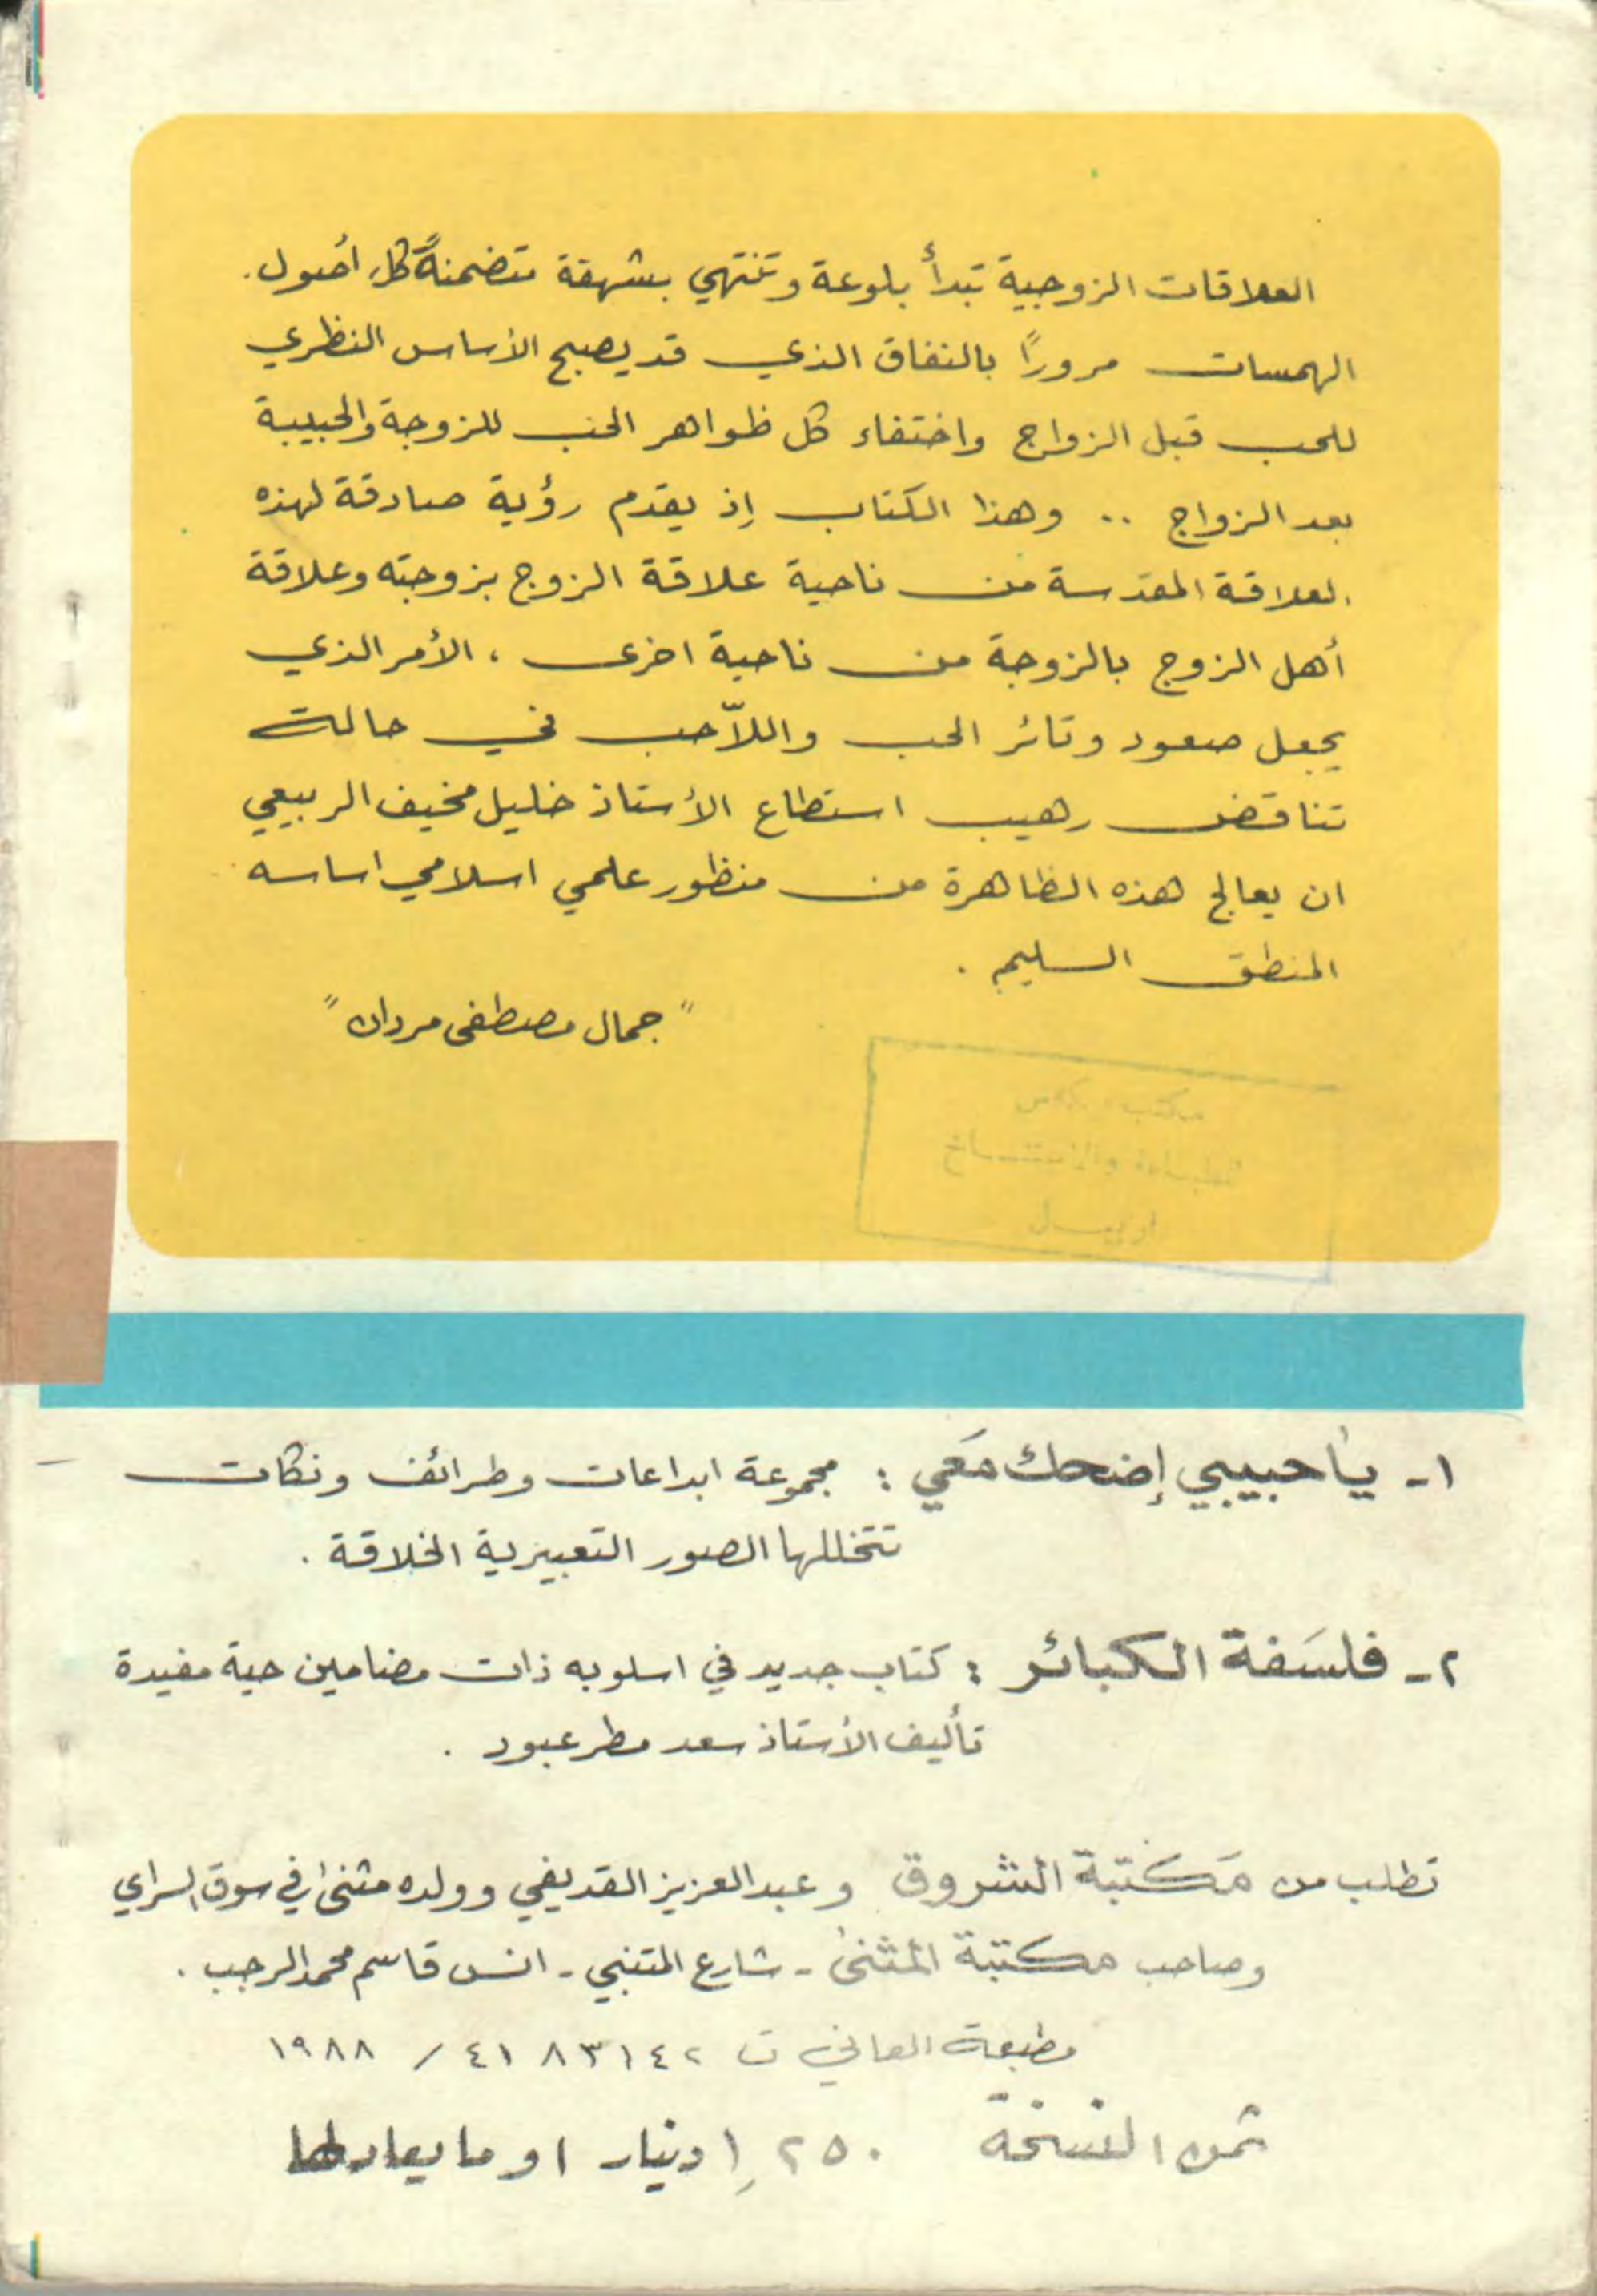 العلاقات الزوجية تبدأ بلوعة وتنتهي بشهقة متضمنةً كل اصول.
الهمسات مروراً بالنفاق الذي قد يصبح الأساس النظري
للحب قبل الزواج واختفاء كل ظواهر الحب للزوجة والحبيبة
بعد الزواج .. وهذا الكتاب إذ يقدم رؤية صادقة لهذه
العلاقة المقدسة من ناحية علاقة الزوج بزوجته وعلاقة
أهل الزوج بالزوجة من ناحية اخرى ، الأمر الذي
يجعل صعود وتائر الحب واللاّحب في حالة
تناقض رهيب استطاع الأستاذ خليل مخيف الربيعي
ان يعالج هذه الظاهرة من منظور علمي اسلامي اساسه
المنطق السليم .
" جمال مصطفى مردان "
مكتب
للطباعة والاستنساخ
اربيل
١- يا حبيبي إضحك مَعي : مجموعة ابداعات وطرائف ونكات
تتخللها الصور التعبيرية الخلاقة .
٢- فلسَفة الكبائر : كتاب جديد في اسلوبه ذات مضامين حية مفيدة
تأليف الأستاذ سعد مطر عبود .
تطلب من مَكتبة الشروق وعبدالعزيز القديفي وولده مثنى في سوق السراي
وصاحب مكتبة المثنى - شارع المتنبي - انس قاسم محمد الرجب .
مطبعة العاني ت ٤١٨٣١٤٢ / ١٩٨٨
ثمن النسخة ١,٢٥٠ دينار او ما يعادلها